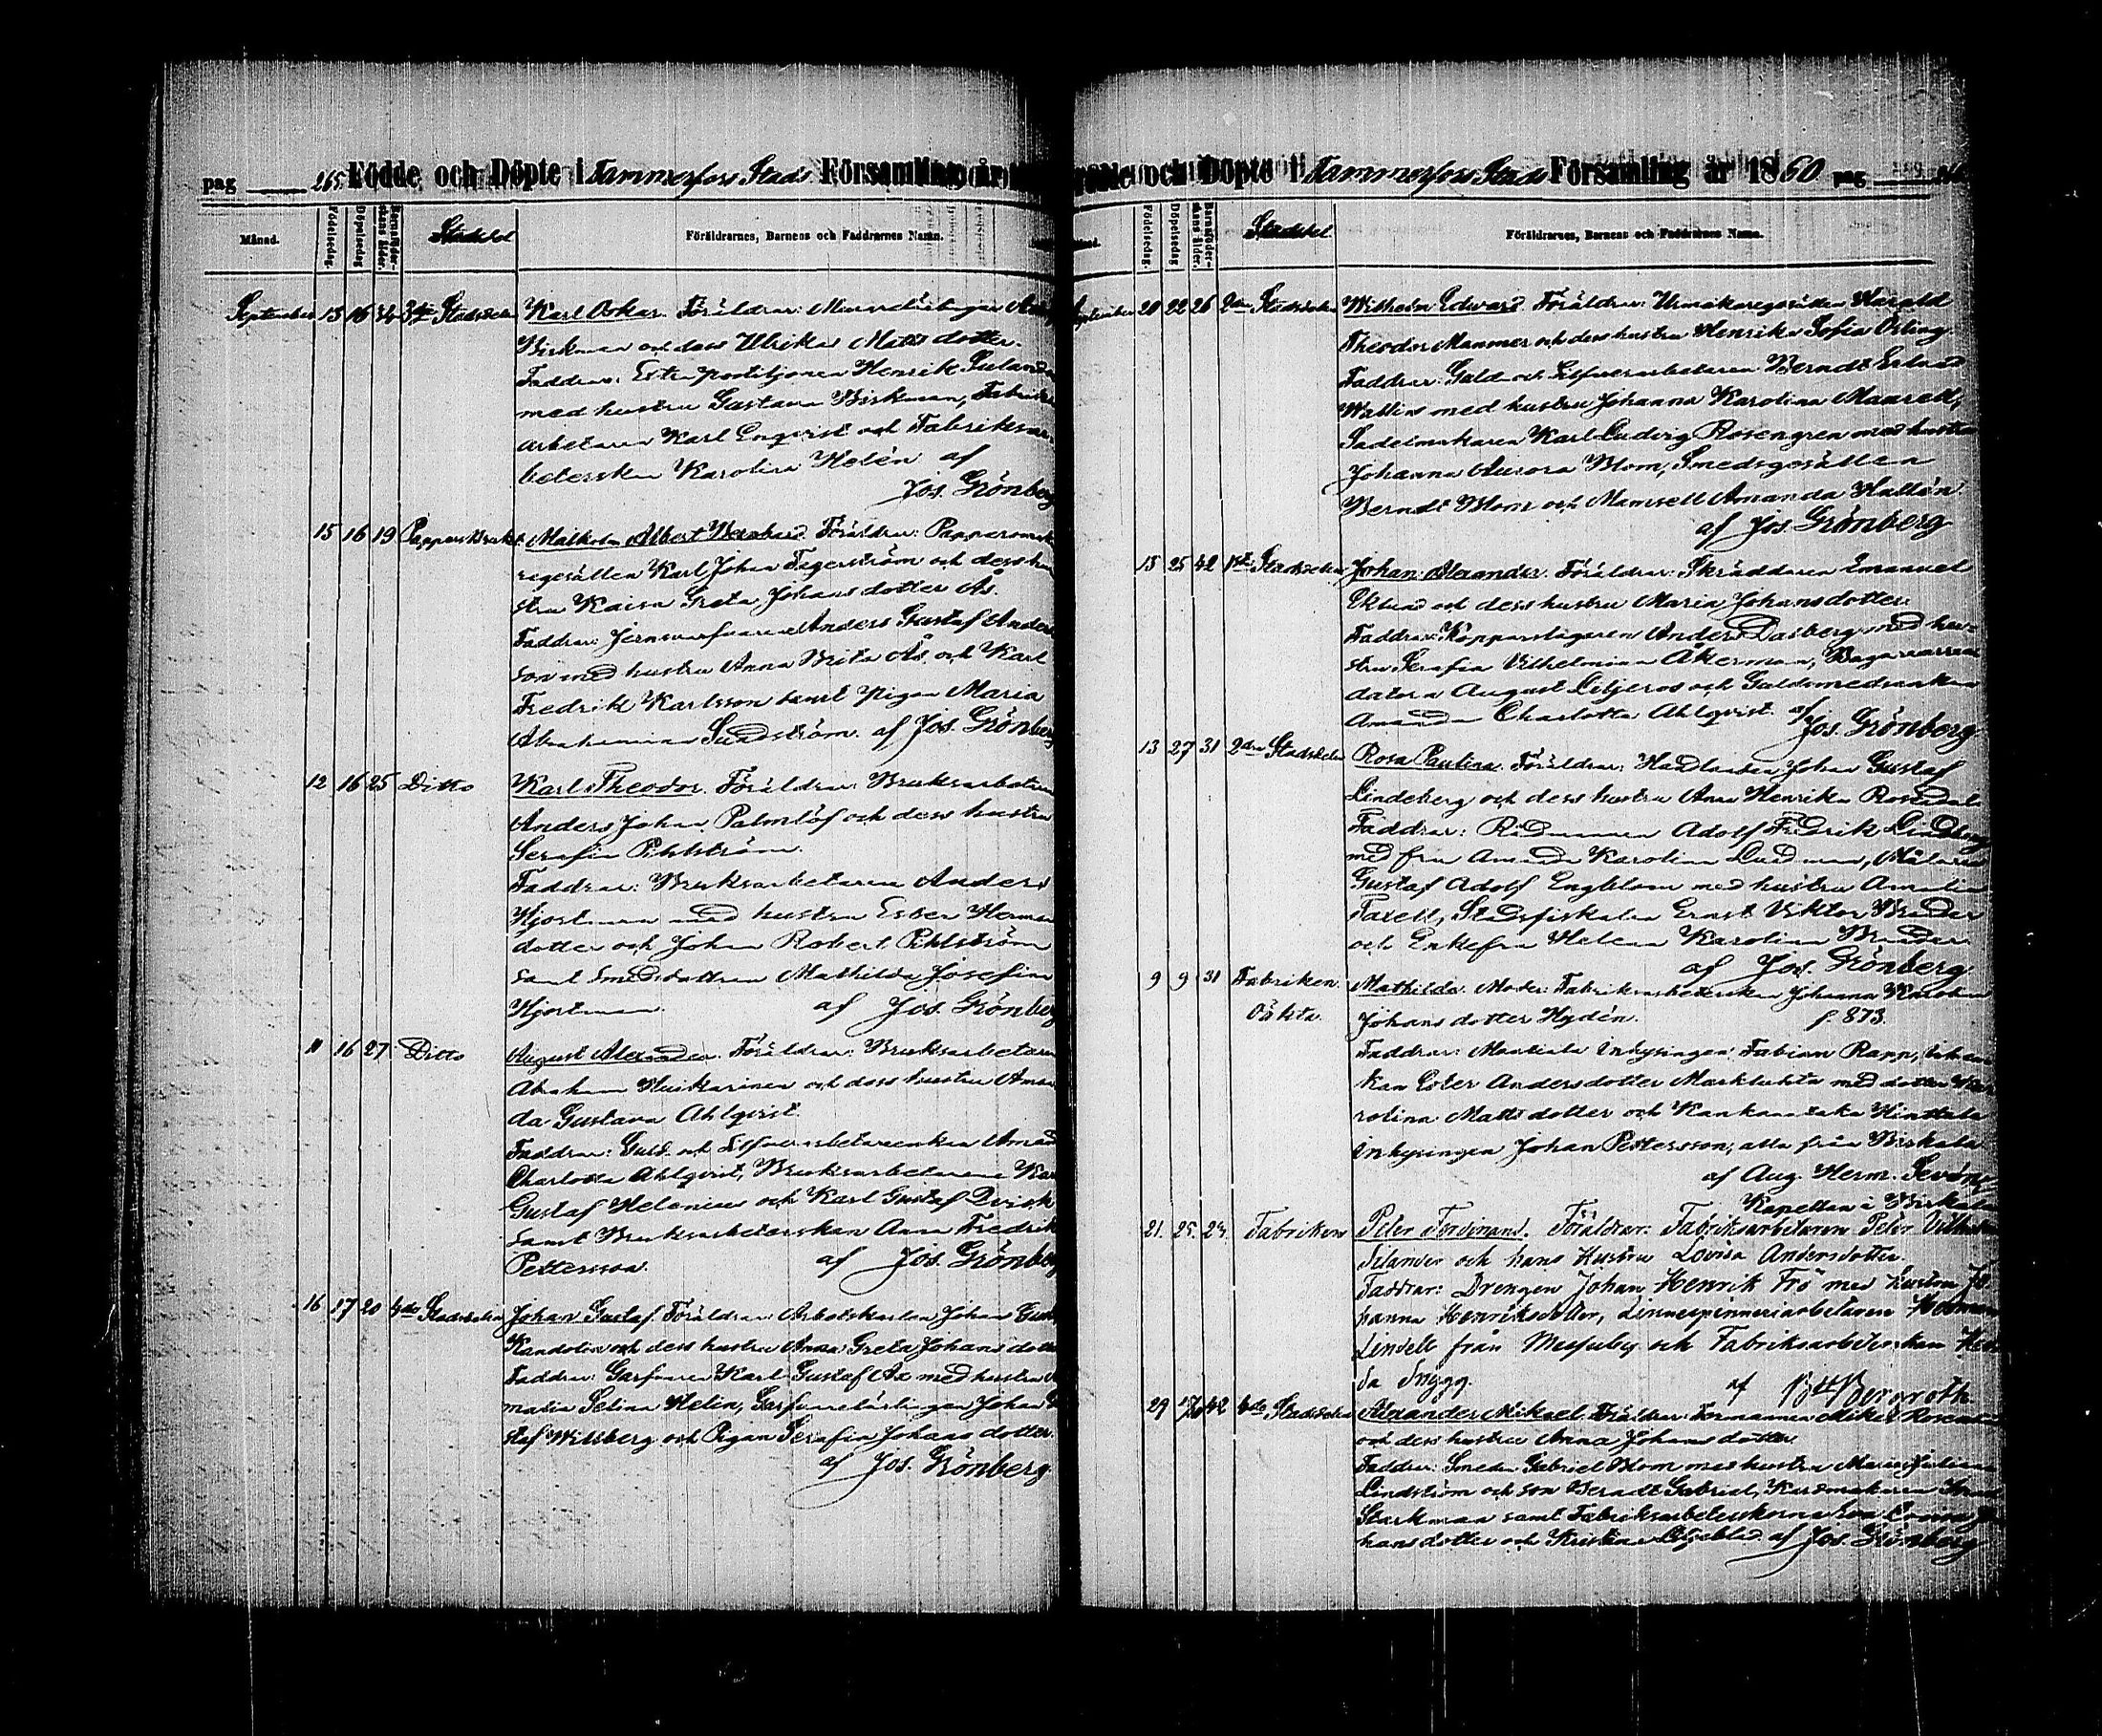 pag 265. Födde och Döpte i Tammerfors Stads Församling år
Månad. Födelsedag. Döpelsedag Barnaföderskans ålder. Stadsdel Föräldrarnes, Barnens och Faddrarnes Namn.
September 13 16 34 3dje Stadsdelen Karl Oskar. Föräldrar: Murarelärlingen
Birkman och dess Ulrika Mattsdotter.
Faddrar: Extra postiljonen Henrik
med hustru Gustava Birkman, Fabriks
arbetaren Karl Engvist och Fabriksar
beterskan Karolina Helén af
Jos. Grönberg
15 16 19 Pappersbruket Malkolm Albert Bernhard. Föräldrar: Papparsmaka
regesällen Karl Johan Fagerström och dess hu
stru Kaisa Greta Johansdotter Ås.
Faddrar: Jernsvarfvaren Anders Gustaf Anders
son med hustru Anna Brita Ås och Karl
Fredrik Karlsson samt Pigan Maria
Abrahamina Sundström. af Jos. Grönberg
12 16 25 Ditto Karl Theodor. Föräldrar: Bruksarbetaren
Anders Johan Palmlöf och dess hustru
Serafia Pihlström.
Faddrar: Bruksarbetaren Anders
Hjortman med hustru Ester Hermans
dotter och Johan Robert Pihlström
samt Smedsdottren Mathilda Josefina
Hjortman. af Jos. Grönberg
11 16 27 Ditto August Alexander. Föräldrar: Bruksarbetaren
Abraham Huikarinen och dess hustru Aman
da Gustava Ahlqvist.
Faddrar: Guld- och Silfverarbetareenkan Amanda
Charlotta Ahlqvist, Bruksarbetarene Karl
Gustaf Helenius och Karl Gustaf Qvisk
samt Bruksarbeterskan Anna Fredrika
Pettersson. af Jos. Grönberg
16 17 20 4de Stadsdelen Johan Gustaf. Föräldrar: Arbetskarlen Johan Gust
Kandolin och dess hustru Anna Greta Johansdotter
Faddrar: Garfvaren Karl Gustaf Ax med hustru A
malia Selina Helin, Garfvarelärlingen Johan Gu
staf Willberg och Pigan Serafia Johansdotter.
af Jos. Grönberg
och Döpte i Tammerfors Stads Församling år 1860 pag 266
Födelsedag. Döpelsedag Barnaföderskans ålder. Stadsdel. Föräldrarnes, Barnens och Faddrarnes Namn.
September 20 22 26 2dra Stadsdelen Wilhelm Edward. Föräldrar: Urmakaregesällen Harald
Theodor Mammer och dess hustru Henrika Sofia Östing
Faddrar: Guld- och Silfverarbetaren Berndt Erland
Wallins med hustru Johanna Karolina Maurell,
Sadelmakaren Karl Ludvig Rosengren med hustru
Johanna Aurora Blom, Smedsgesällen
Berndt Blom och Mamsell Amanda Hallén
af Jos. Grönberg
15 25 42 1sta Stadsdelen Johan Alexander. Föräldrar: Skräddaren Emanuel
Eklund och dess hustru Maria Johansdotter.
Faddrar: Kopparslagaren Anders Dasberg med hu-
stru Serafia Vilhelmina Åkerman, Bagarearren
datorn August Liljeros och Guldsmedsenkan
Amanda Charlotta Ahlqvist. af
Jos. Grönberg
13 27 31 2dra Stadsdelen Rosa Paulina. Föräldrar: Handlanden Johan Gustaf
Lindeberg och dess hustru Anna Henrika Rosendal
Faddrar: Rådmannen Adolf Fredrik Lindberg
med fru Amanda Karolina Lindman, Målaren
Gustaf Adolf Engblom med hustru Amalia
Taxell, Stadsfiskalen Ernst Viktor Brander
och Enkefru Helena Karolina Brander
af Jos. Grönberg
9 9 31 Fabriken Mathilda. Moder: Fabriksarbeterskan Johanna Karolina
Oäkta. Johansdotter Hydén. f. 873.
Faddrar: Inhysingen Fabian Rapp, Enkan
Ester Andersdotter med dotter Ka
rolina Mattsdotter och
Inhysingen Johan Pettersson, alla från Birkala
af Aug. Herm.
Kapellan i Birkala
21. 25. 23. Fabriken Peter Ferdinand. Föräldrar: Fabriksarbetaren Peter Vilhelm
Selander och hans Hustru Lovisa Andersdotter.
Faddrar: Drengen Johan Henrik Frö med hustru Jo
hanna Henriksdotter, Linnespinneriarbetaren Herman
Lindell från Messuby och Fabriksarbeterskan
da Snygg. af Bergroth
29 42 4de Stadsdelen Alexander Mikael. Föräldrar: Formannen Mikel
och dess hustru Anna Johansdotter.
Faddrar: Smeden Gabriel Blom med hustru Maria Juliana
Lindström och son Berndt Gabriel, Kardmakaren
Starkman samt Fabriksarbeterskorna Eva Lovisa Jo
hansdotter och Kristina Löfblad. af Jos. Grönberg